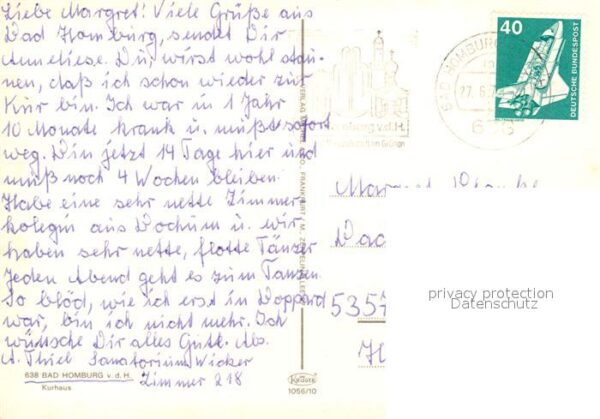 Liebe Margret! Viele Grüße aus
Bad Homburg, sendet Dir
Anneliese. Du, wirst wohl stau-
nen, daß ich schon wieder zur
Kur bin. Ich war in 1 Jahr
10 Monate krank u. mußte sofort
weg. Bin jetzt 14 Tage hier und
muß noch 4 Wochen bleiben.
Habe eine sehr nette Zimmer
kolegin aus Bochum u. wir
haben sehr nette, flotte Tänzer
Jeden Abend geht es zum Tanzen.
So blöd, wie ich erst in Boppard
war, bin ich nicht mehr. Ich
wünsche Dir alles Gute. Abs.
A. Thiel Sanatorium Wicker
Zimmer 218
638 BAD HOMBURG v. d. H.
Kurhaus
KRÜGER
1056/10
40
DEUTSCHE BUNDESPOST
BAD HOMBURG
27.6.7
v.d.H.
Margret
Bad
5357
privacy protection
Datenschutz